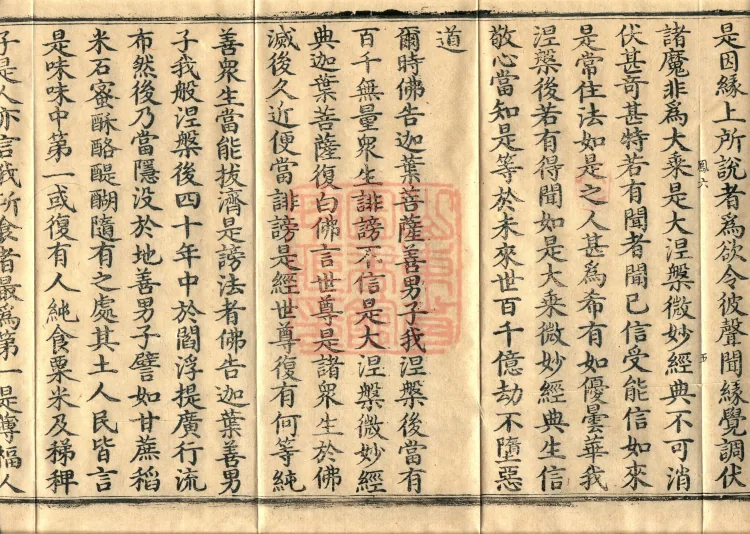 是因緣上所說者為欲令彼聲聞緣覺調伏
諸魔非為大乘是大涅槃微妙經典不可消
伏甚奇甚特若有聞者聞已信受能信如來
是常住法如是之人甚為希有如優曇華我
涅槃後若有得聞如是大乘微妙經典生信
敬心當知是等於未來世百千億劫不墮惡
道
爾時佛告迦葉菩薩善男子我涅槃後當有
百千無量眾生誹謗不信是大涅槃微妙經
典迦葉菩薩復白佛言世尊是諸眾生於佛
滅後久近便當誹謗是經世尊復有何等純
善眾生當能拔濟是謗法者佛告迦葉善男
子我般涅槃後四十年中於閻浮提廣行流
布然後乃當隱没於地善男子譬如甘蔗稻
米石蜜酥酪醍醐隨有之處其土人民皆言
是味味中第一或復有人純食粟米及稊稗
子是人亦言我所食者最為第一是薄福人